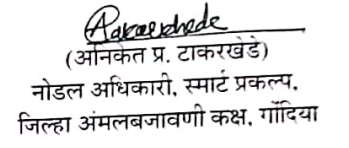 (अनिकेत प्र. टाकरखेडे)
नोडल अधिकारी, स्मार्ट प्रकल्प,
जिल्हा अंमलबजावणी कक्ष, गोंदिया